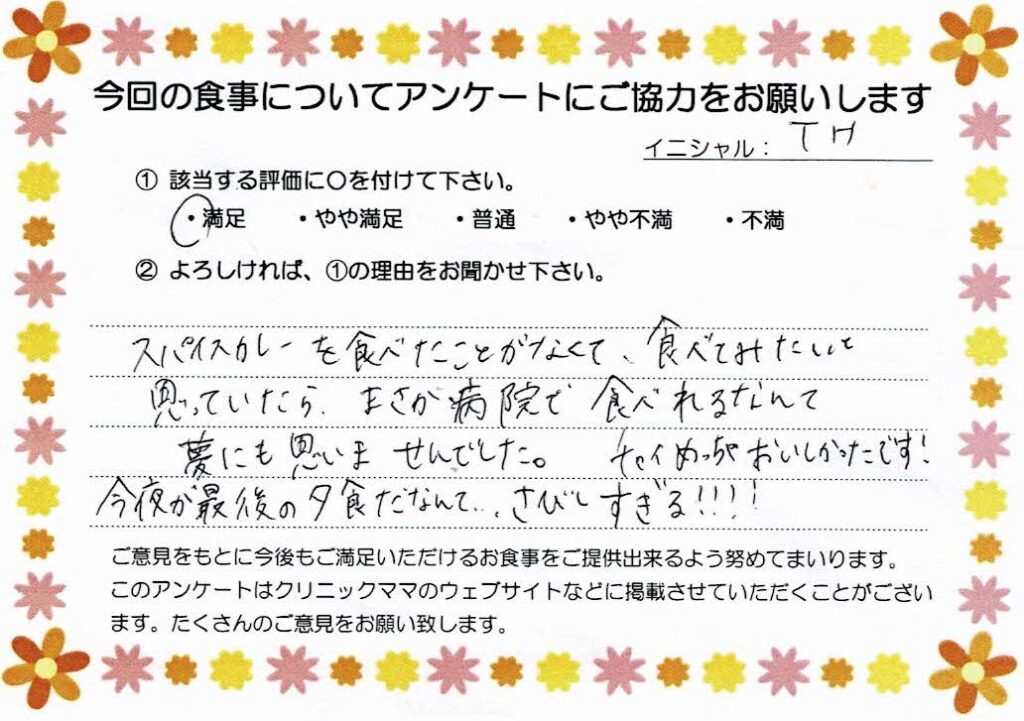 今回の食事についてアンケートにご協力をお願いします
イニシャル： T H
① 該当する評価に〇を付けて下さい。
・満足 ・やや満足 ・普通 ・やや不満 ・不満
② よろしければ、①の理由をお聞かせ下さい。
スパイスカレーを食べたことがなくて、食べてみたいと
思っていたら、まさか病院で食べれるなんて
夢にも思いませんでした。 チャイめっちゃおいしかったです!
今夜が最後の夕食だなんて...さびしすぎる!!!!
ご意見をもとに今後もご満足いただけるお食事をご提供出来るよう努めてまいります。
このアンケートはクリニックママのウェブサイトなどに掲載させていただくことがござい
ます。たくさんのご意見をお願い致します。